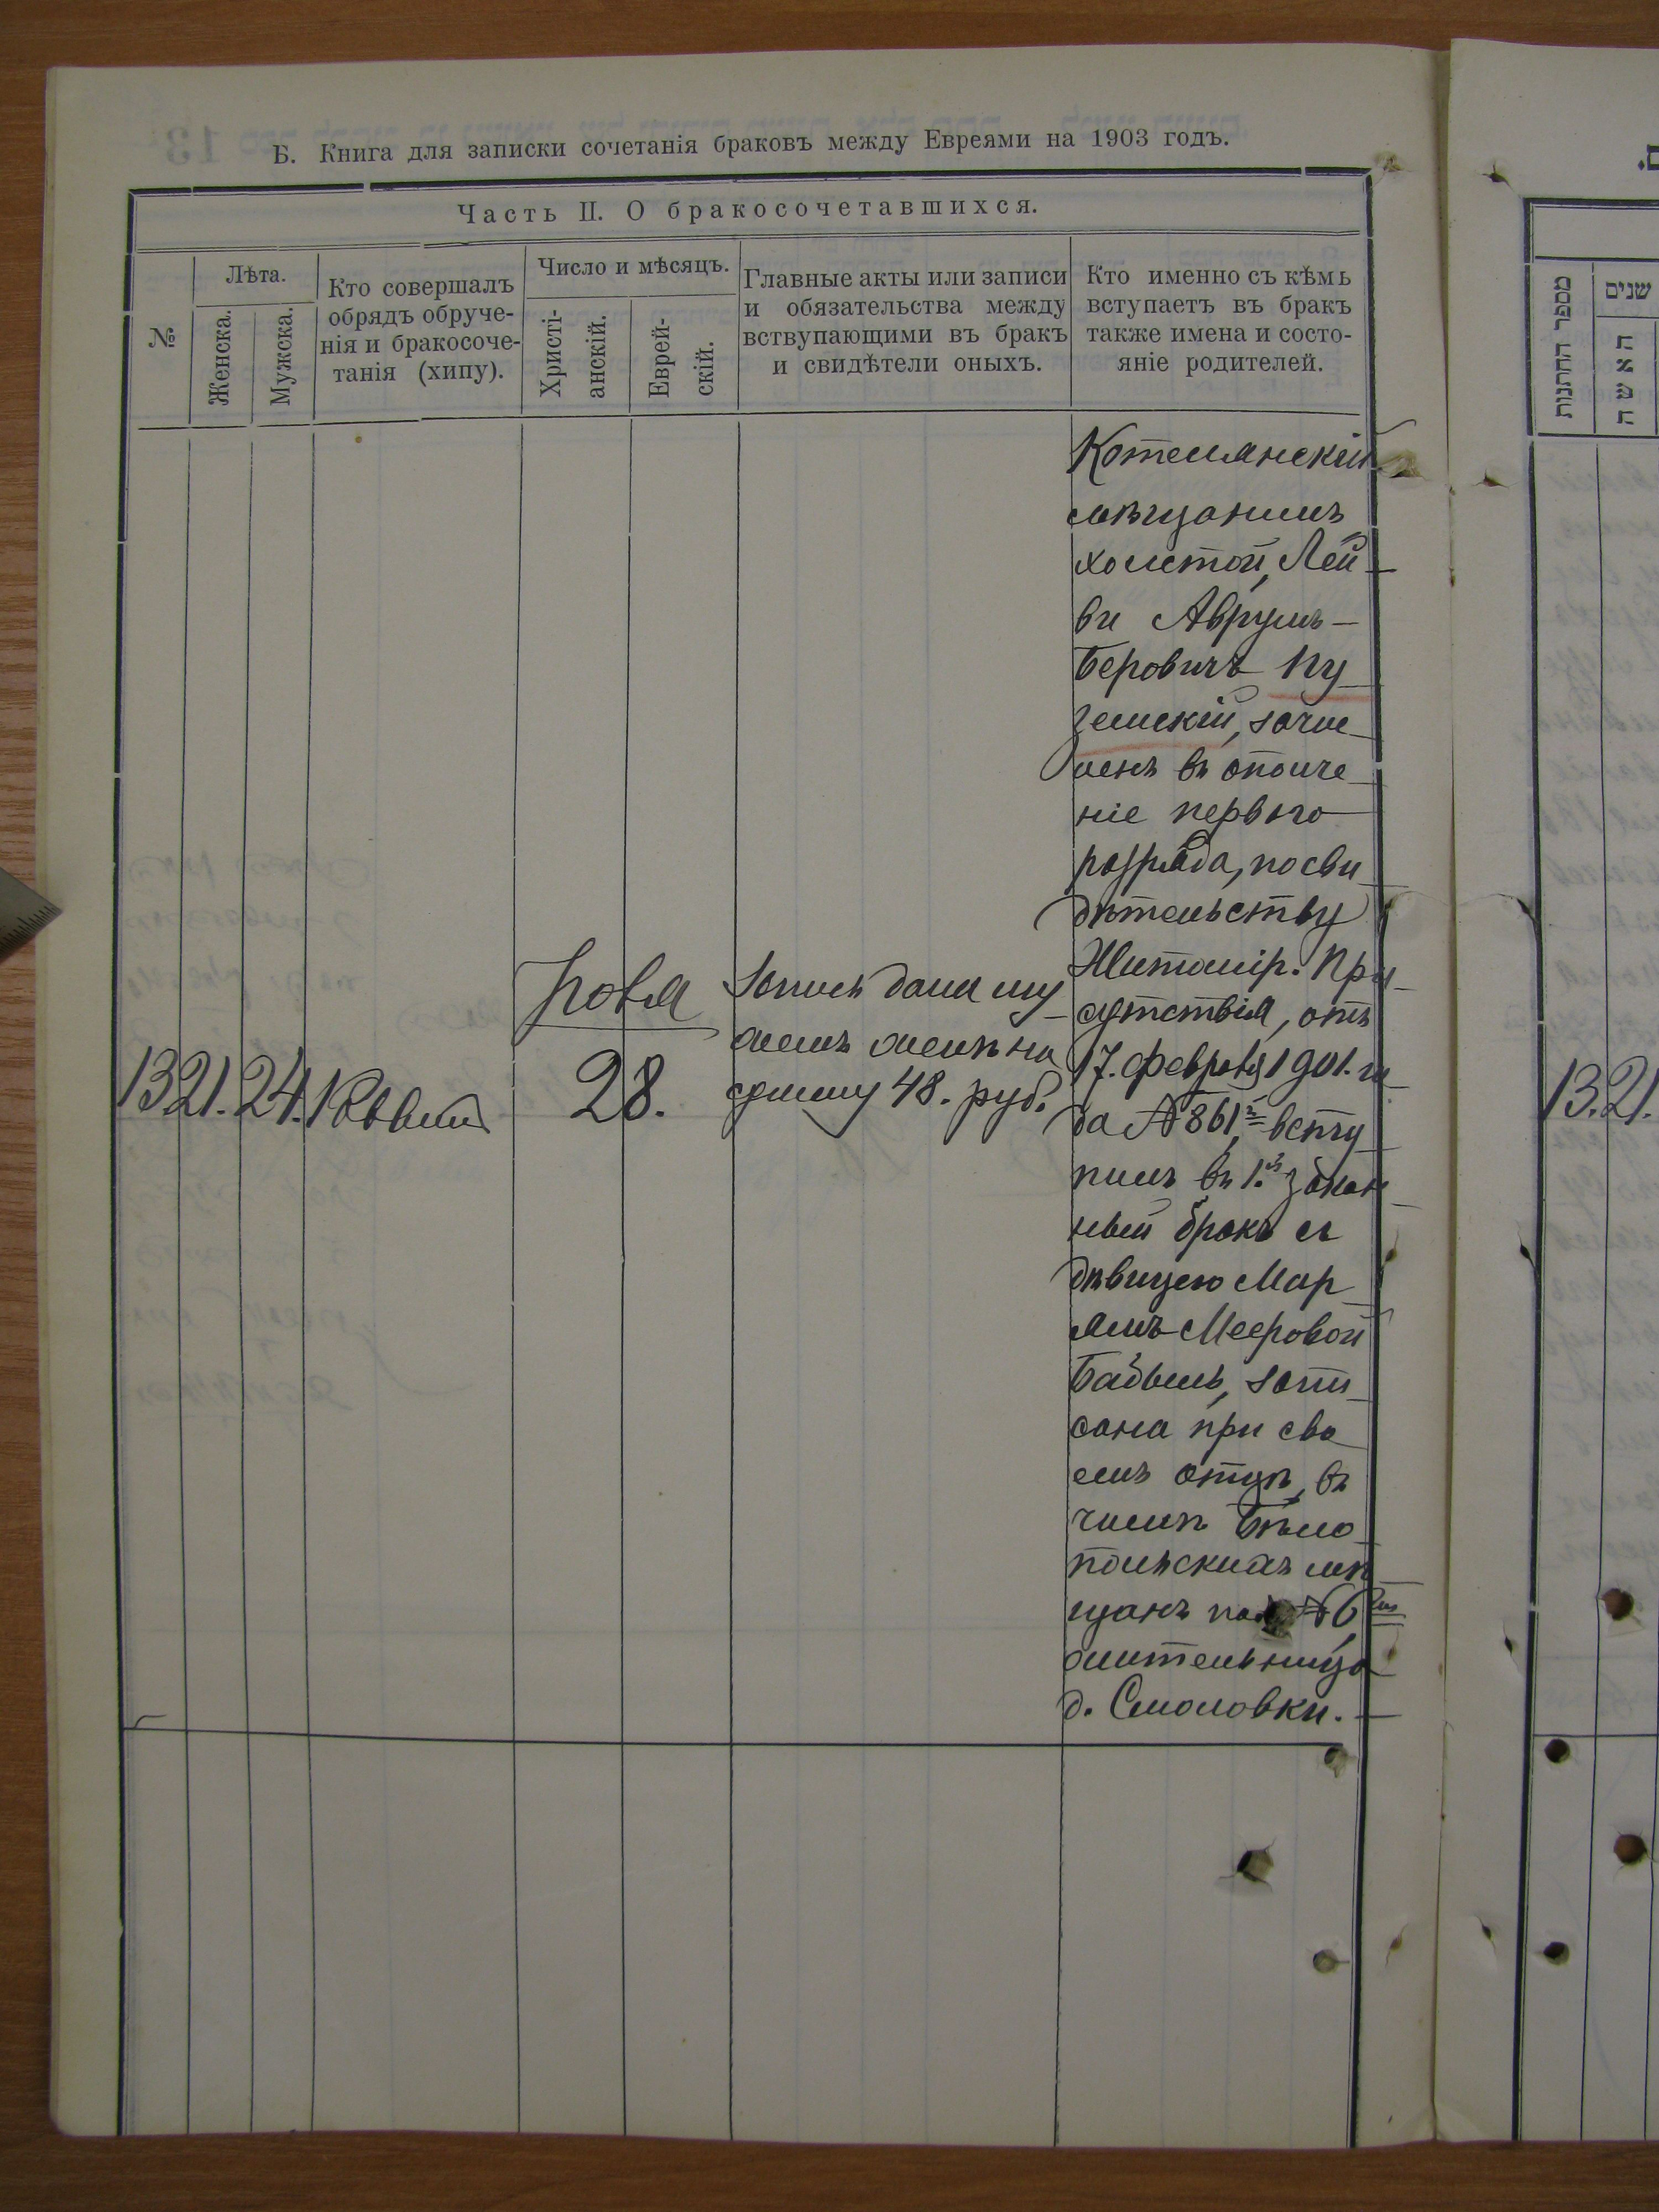 Б. Книга для записки сочетанія браковъ между Евреями на 1903 годъ.
Часть II. О бракосочетавшихся.
№
Лѣта.
Женска.
Мужска.
Кто совершалъ
обрядъ обруче-
нія и бракосоче-
танія (хипу).
Число и мѣсяцъ.
Христі-
анскій.
Еврей-
скій.
Главные акты или записи
и обязательства между
вствупающими въ бракъ
и свидѣтели оныхъ.
Кто именно съ кѣмь
вступаетъ въ бракъ
также имена и состо-
яніе родителей.
13
21.
24.
Раввин
Ноября
28.
Запись дана му
жемъ женѣ на
сумму 48. руб.
Котелянскій
мѣщанинъ
холстой, Лей
ви Аврумъ-
Беровичъ
земскій, зачис
ленъ въ ополче
ніе перваго
розряда, по сви
дѣтельству
Житомір. При
сутствія, отъ
17. февраля 1901. го
да № 861, всту
пилъ въ 1.й закон
ный бракъ съ
дѣвицею Мар
ямъ Мееровой
запи
сана при сво
емъ отцѣ, въ
числѣ Бѣло
польскихъ мѣ
щанъ под № 6
жительница
д. Смоловки.
מספר החתנות
שנים
האשה
13.
21.